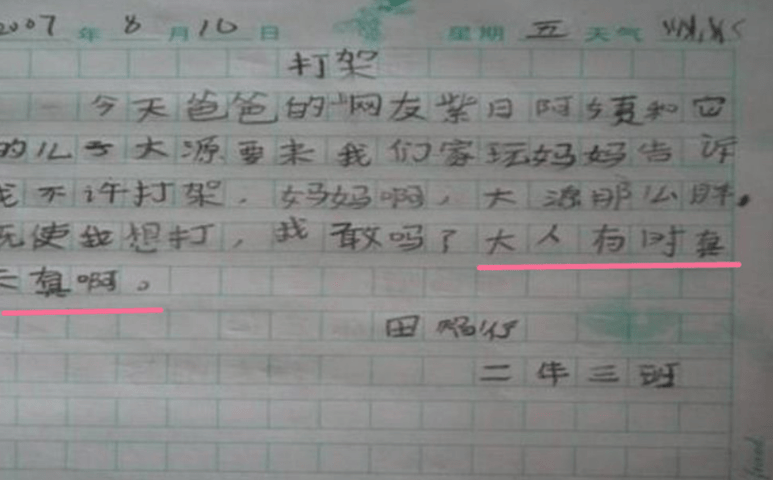 2007 年 8 月 10 日 星期 五 天气
打架
今天爸爸的"网友紫日阿姨和它
的儿子大源要来我们家玩妈妈告诉
我不许打架。妈妈啊,大源那么胖。
既使我想打,我敢吗?大人有时真
天真啊。
田
二年三班